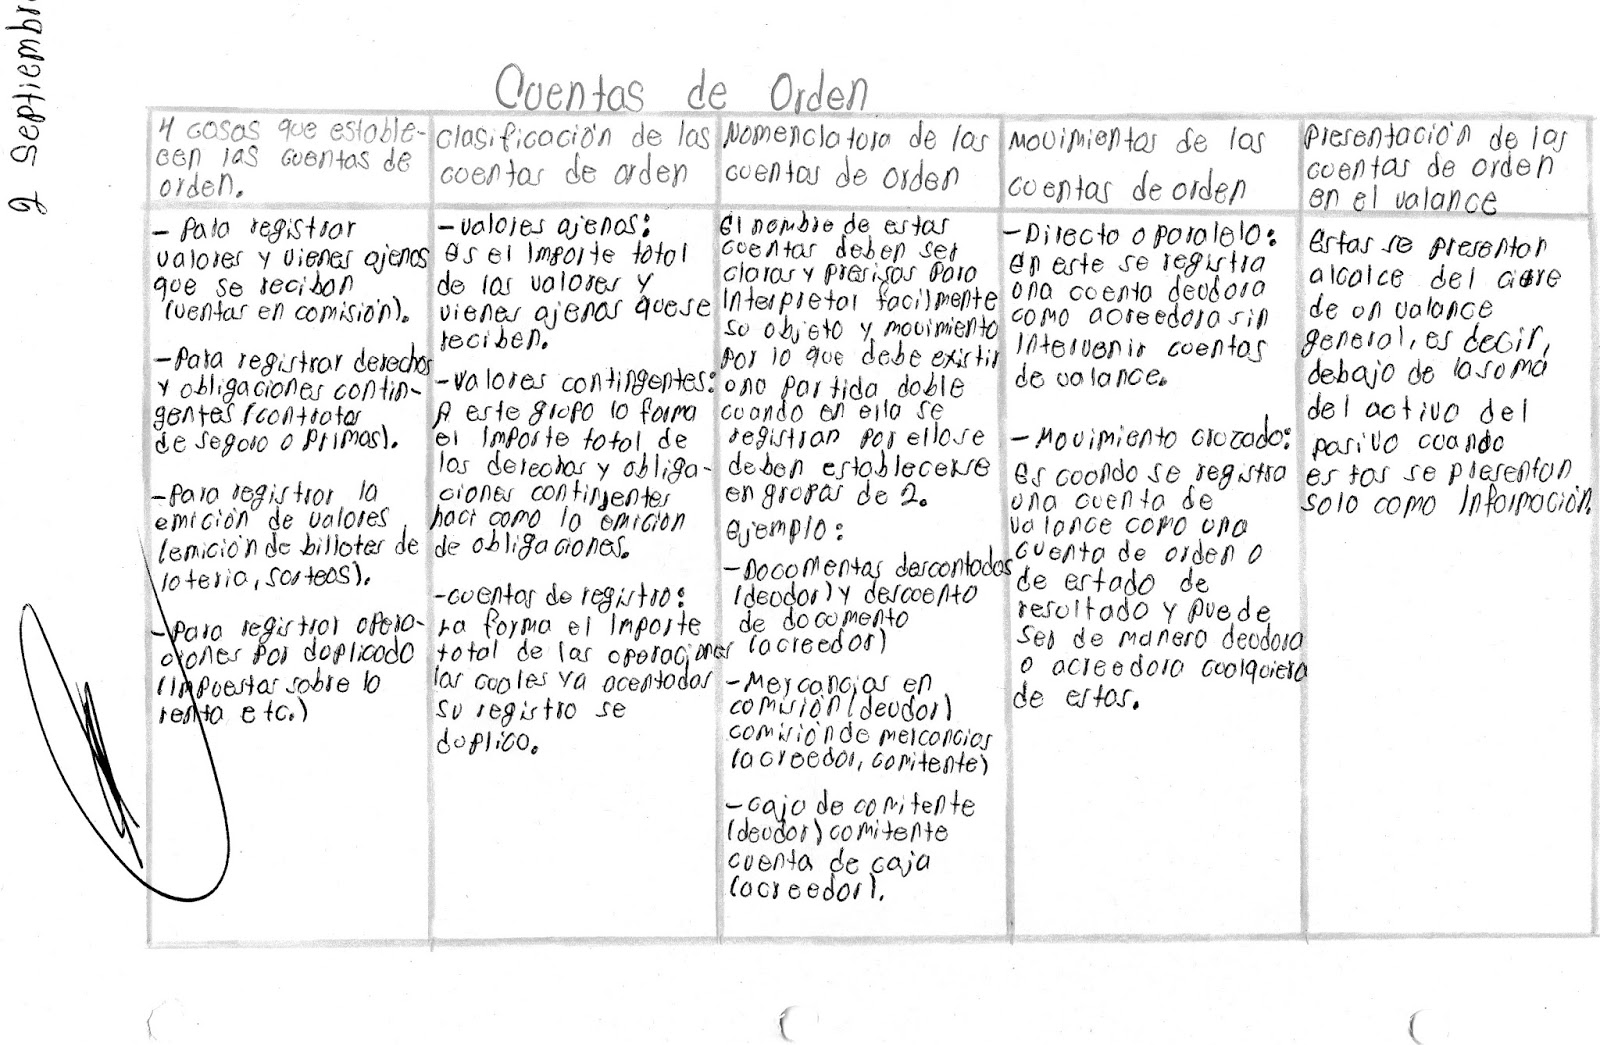 2 Septiembre
Cuentas de Orden
4 cosas que estable-
cen las cuentas de
orden.
- Para registrar
valores y vienes ajenos
que se reciban
(ventas en comisión).
- Para registrar derechos
y obligaciones contin-
gentes (contratos
de seguro o primas).
- Para registrar la
emición de valores
(emición de billotes de
lotería, sorteos).
- Para registrar opera-
ciones por duplicado
(impuestas sobre la
renta etc.)
clasificación de las
cuentas de orden
- valores ajenos:
es el importe total
de las valores y
vienes ajenos que se
reciben.
- valores contingentes:
A este grupo lo forma
el importe total de
los derechos y obliga-
ciones contingentes
haci como la emicion
de obligaciones.
- cuentas de registro:
La forma el importe
total de las operaciones
las cuales ya acentadas
su registro se
duplico.
Nomenclatura de las
cuentas de orden
el nombre de estas
cuentas deben ser
claras y presisas para
Interpretar facilmente
su objeto y movimiento
por lo que debe existir
una partida doble
cuando en ella se
registran por ello se
deben establecerse
en grupos de 2.
ejemplo:
- Documentos descontados
(deudor) y descuento
de documento
(acreedor)
- Mercancías en
comisión (deudor)
comisión de mercancias
(acreedor, comitente)
- caja de comitente
(deudor) comitente
cuenta de caja
(acreedor).
Movimientos de las
cuentas de orden
- Directo o paralelo:
en este se registra
una cuenta deudora
como acreedora sin
intervenir cuentas
de valance.
- Movimiento cruzado:
es cuando se registra
una cuenta de
valance como una
cuenta de orden o
de estado de
resultado y puede
ser de manera deudora
o acreedora cualquiera
de estas.
presentación de las
cuentas de orden
en el valance
estas se presentan
alcalce del cierre
de un valance
general, es decir,
debajo de la suma
del activo del
pasivo cuando
estas se presentan
solo como Información.